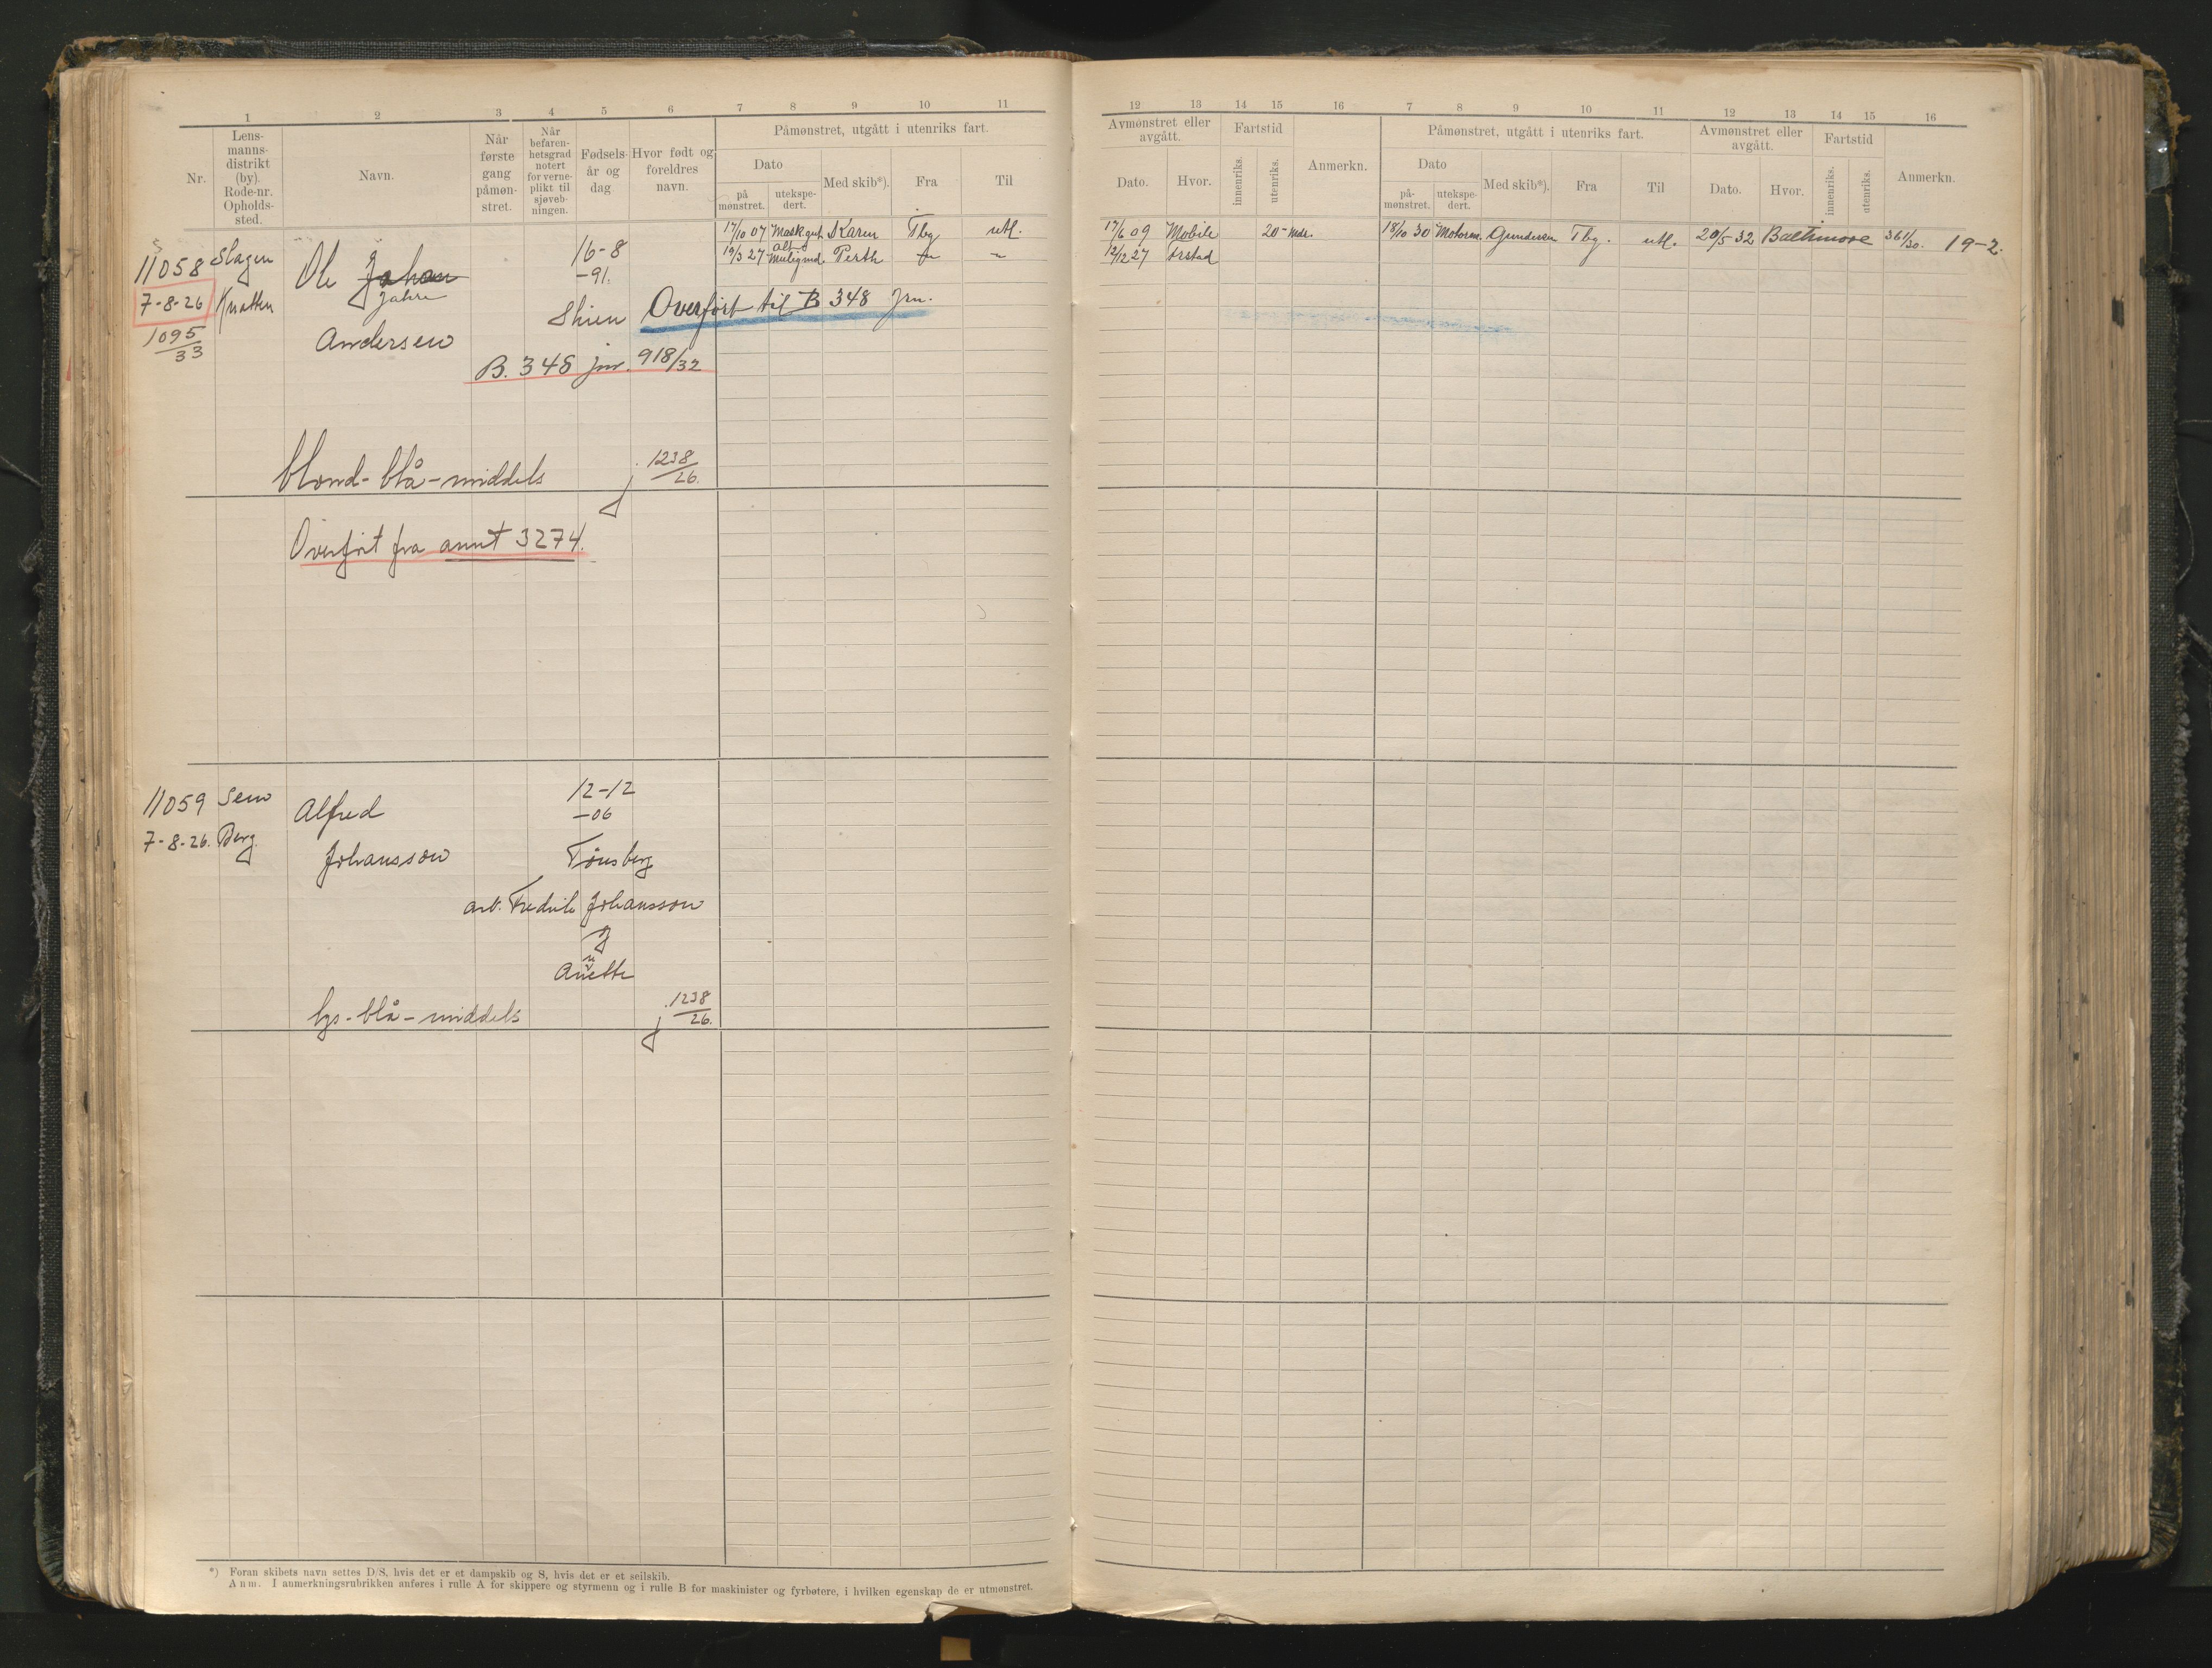 1 2 3 4 5 6 7 8 9 10 11
Nr.
Lens-
manns-
distrikt
(by).
Rode-nr.
Opholds-
sted.
Navn.
Når
første
gang
påmøn-
stret.
Når
befaren-
hetsgrad
notert
for verne-
plikt til
sjøveb-
ningen.
Fødsels-
år og
dag.
Hvor født og
foreldres
navn.
Påmønstret, utgått i utenriks fart.
Dato
på
mønstret.
utekspe-
dert.
Med skib*).
Fra
Til
11058 Slagen Ole Johan 16-8
Jahre -91.
7-8-26 Knatten
1095/33 Andersen Skien
17/10 07 Mask.gut Karen Tbg utl.
19/3 27 Perth
Overført til B 348 jrn.
B. 348 jnr. 918/32
blond - blå - middels j. 1238/26.
Overført fra annt 3274.
11059 Sem Alfred 12-12
-06
7-8-26. Berg. Johansson Tønsberg
arb. Fredrik Johansson
og
n
Anette
lys - blå - middels j. 1238/26.
*) Foran skibets navn settes D/S, hvis det er et dampskib og S, hvis det er et seilskib.
Anm. I anmerkningsrubrikken anføres i rulle A for skippere og styrmenn og i rulle B for maskinister og fyrbøtere, i hvilken egenskap de er utmønstret.
12 13 14 15 16 7 8 9 10 11 12 13 14 15 16
Avmønstret eller
avgått.
Dato.
Hvor.
Fartstid
innenriks.
utenriks.
Anmerkn.
Påmønstret, utgått i utenriks fart.
Dato
på-
mønstret.
utekspe-
dert.
Med skib*).
Fra
Til
Avmønstret eller
avgått.
Dato.
Hvor.
Fartstid
innenriks.
utenriks.
Anmerkn.
17/6 09 Mobile 20 - mdr. 18/10 30 Motorm. Gundersen Tbg. utl. 20/5 32 Baltimore 361/30. 19-2.
12/12 27